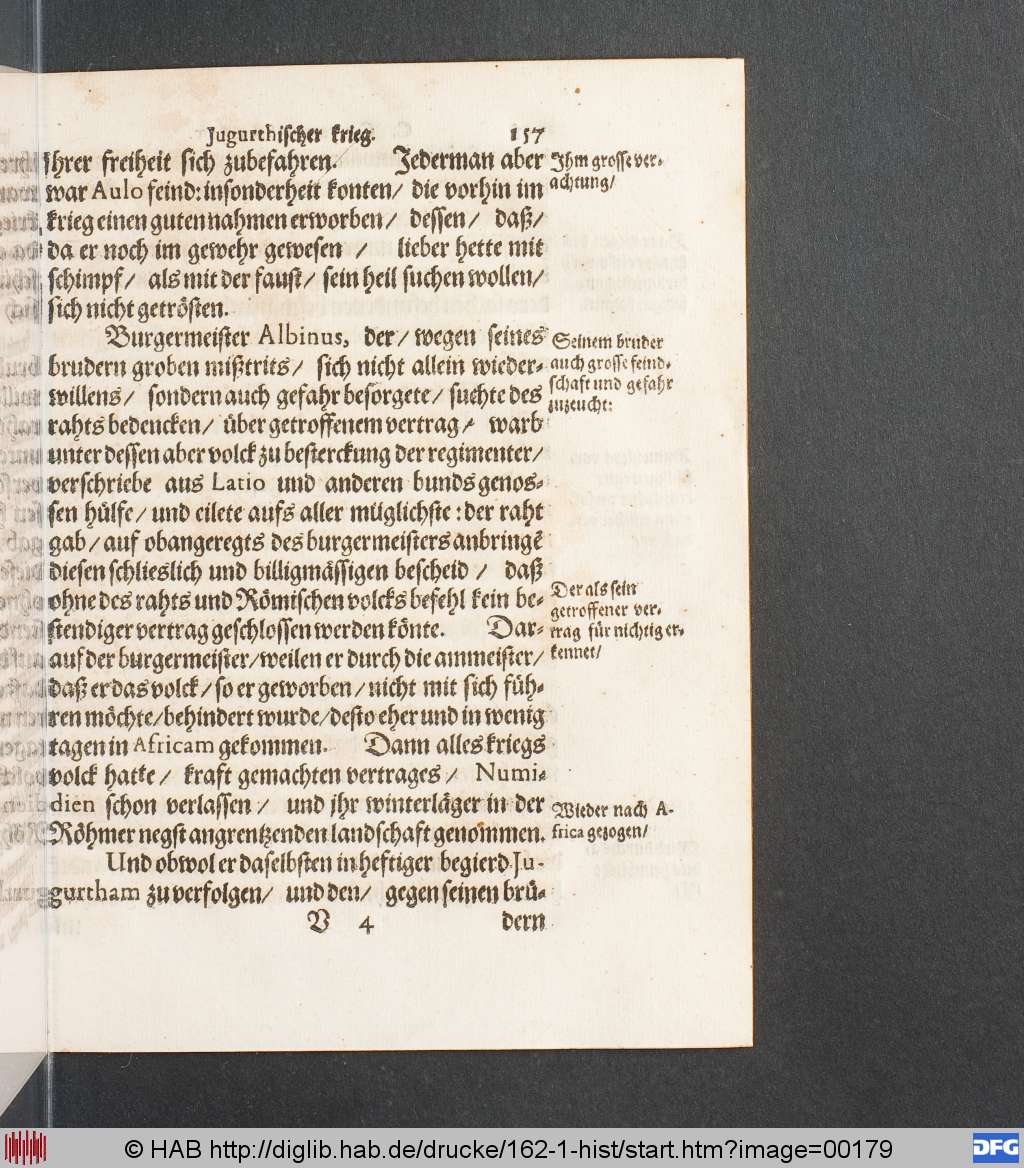 Jugurthischer krieg. 157
ihrer freiheit sich zubefahren. Jederman aber
war Aulo feind: insonderheit konten/ die vorhin im
krieg einen guten nahmen erworben/ dessen/ daß/
da er noch im gewehr gewesen / lieber hette mit
schimpf/ als mit der faust/ sein heil suchen wollen/
sich nicht getrösten.
Ihm grosse ver-
achtung/
Burgermeister Albinus, der/ wegen seines
brudern groben mißtrits/ sich nicht allein wieder-
willens/ sondern auch gefahr besorgete/ suchte des
rahts bedencken/ über getroffenem vertrag/ warb
unter dessen aber volck zu besterckung der regimenter/
verschriebe aus Latio und anderen bundsgenos-
sen hülfe/ und eilete aufs aller müglichste: der raht
gab/ auf obangeregts des burgermeisters anbringẽ
diesen schlieslich und billigmässigen bescheid / daß
ohne des rahts und Römischen volcks befehl kein be-
stendiger vertrag geschlossen werden könte. Dar-
auf der burgermeister/ weilen er durch die ammeister/
daß er das volck/ so er geworben/ nicht mit sich füh-
ren möchte/ behindert wurde/ desto eher und in wenig
tagen in Africam gekommen. Dann alles kriegs
volck hatte/ kraft gemachten vertrages/ Numi-
dien schon verlassen/ und jhr winterläger in der
Röhmer negst angrentzenden landschaft genommen.
Seinem bruder
auch grosse feind-
schaft und gefahr
zuzeucht:
Der als sein
getroffener ver-
trag für nichtig er-
kennet/
Wieder nach A-
frica gezogen/
Und obwol er daselbsten in heftiger begierd Ju-
gurtham zu verfolgen/ und den/ gegen seinen brü-
V 4 dern
© HAB http://diglib.hab.de/drucke/162-1-hist/start.htm?image=00179
DFG